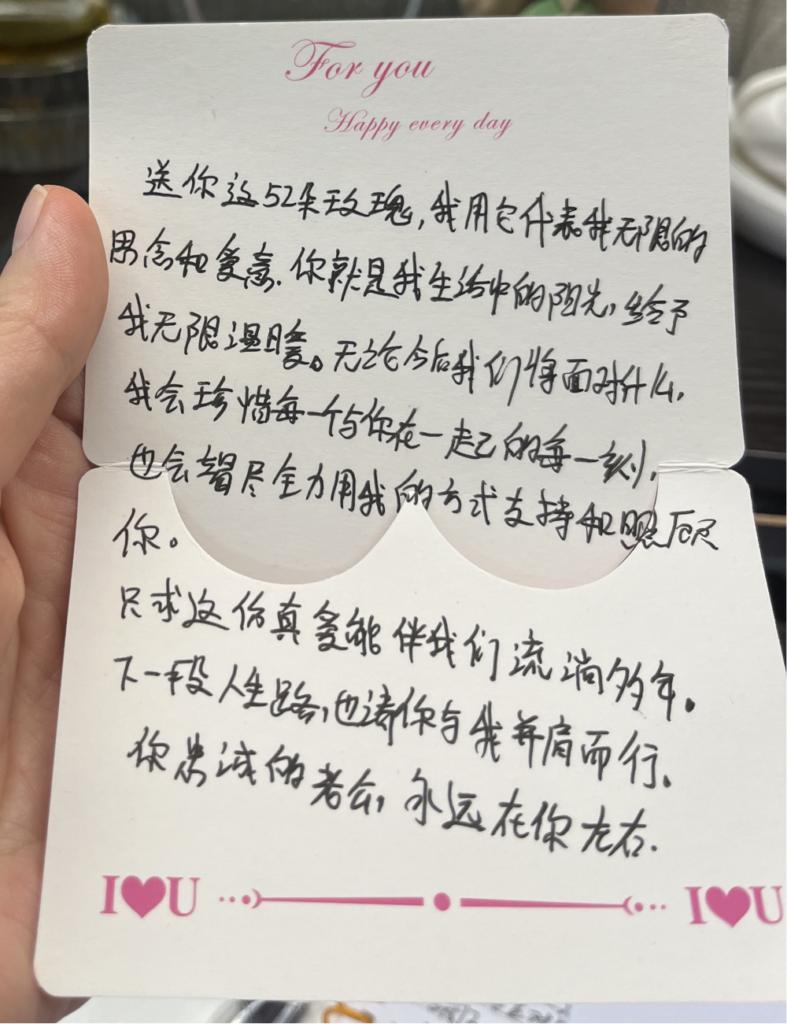 For you
Happy every day
送你这52朵玫瑰,我用它代表我无限的
思念和爱意.你就是我生活中的阳光,给予
我无限温暖。无论今后我们将面对什么,
我会珍惜每一个与你在一起的每一刻,
也会竭尽全力用我的方式支持和照顾
你。
只求这份真爱能伴我们流淌多年。
下一段人生路,也请你与我并肩而行.
你忠诚的老公,永远在你左右.
I♥U
I♥U